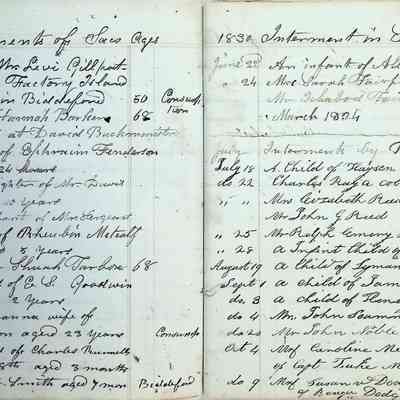 ments of Saco Ages
Mr. Levi Gillpat-
Factory Island
in Biddeford 50 Consump
tion
Hannah Barker 68
at David Buckminster
of Ephraim Fenderson
24 hours
ghter of Mr. Davis
years
ant of Mr Sergeant
of Rheubin Metcalf
5 years
Shuah Tarbox 68
d of E. L. Goodwin
2 years
anna wife of
on aged 23 years Consump
d of Charles Runnells
3 months
Smith aged 7 mon Biddeford
1830 Interment in
June 22 An infant of
" 24 Mrs Sarah Fairf
Mr Ichabod Fair
March 1824
July Interments by
July 18 A Child of
do 22 Charles
" " Mrs Elizabeth Reed
Mr John G Reed
" 25 Mr Ralph Emery
" 28 a Infant Child of
August 19 a Child of Lyman
Sept 1 a Child of Sam
do. 3 a Child of
do 4 Mr. John
do 20 Mr John Noble
Oct 4 Mrs Caroline Me
of Capt Tuke
do 9 Mrs Susan